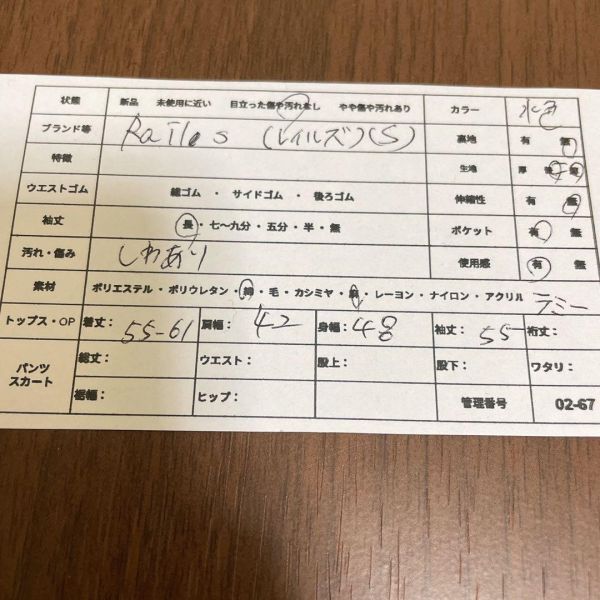 状態 新品 未使用に近い 目立った傷や汚れなし やや傷や汚れあり カラー 水色
ブランド等 Railes (レイルズ)(S) 裏地 有 無
特徴 生地 厚 薄
ウエストゴム 総ゴム ・ サイドゴム ・ 後ろゴム 伸縮性 有 無
袖丈 長・七〜九分・五分・半・無 ポケット 有 無
汚れ・傷み しわあり 使用感 有 無
素材 ポリエステル・ポリウレタン・綿・毛・カシミヤ・麻・レーヨン・ナイロン・アクリル ラミー
トップス・OP 着丈: 55-61 肩幅: 42 身幅: 48 袖丈: 55 裄丈:
パンツ スカート 総丈: ウエスト: 股上: 股下: ワタリ:
裾幅: ヒップ: 管理番号 02-67